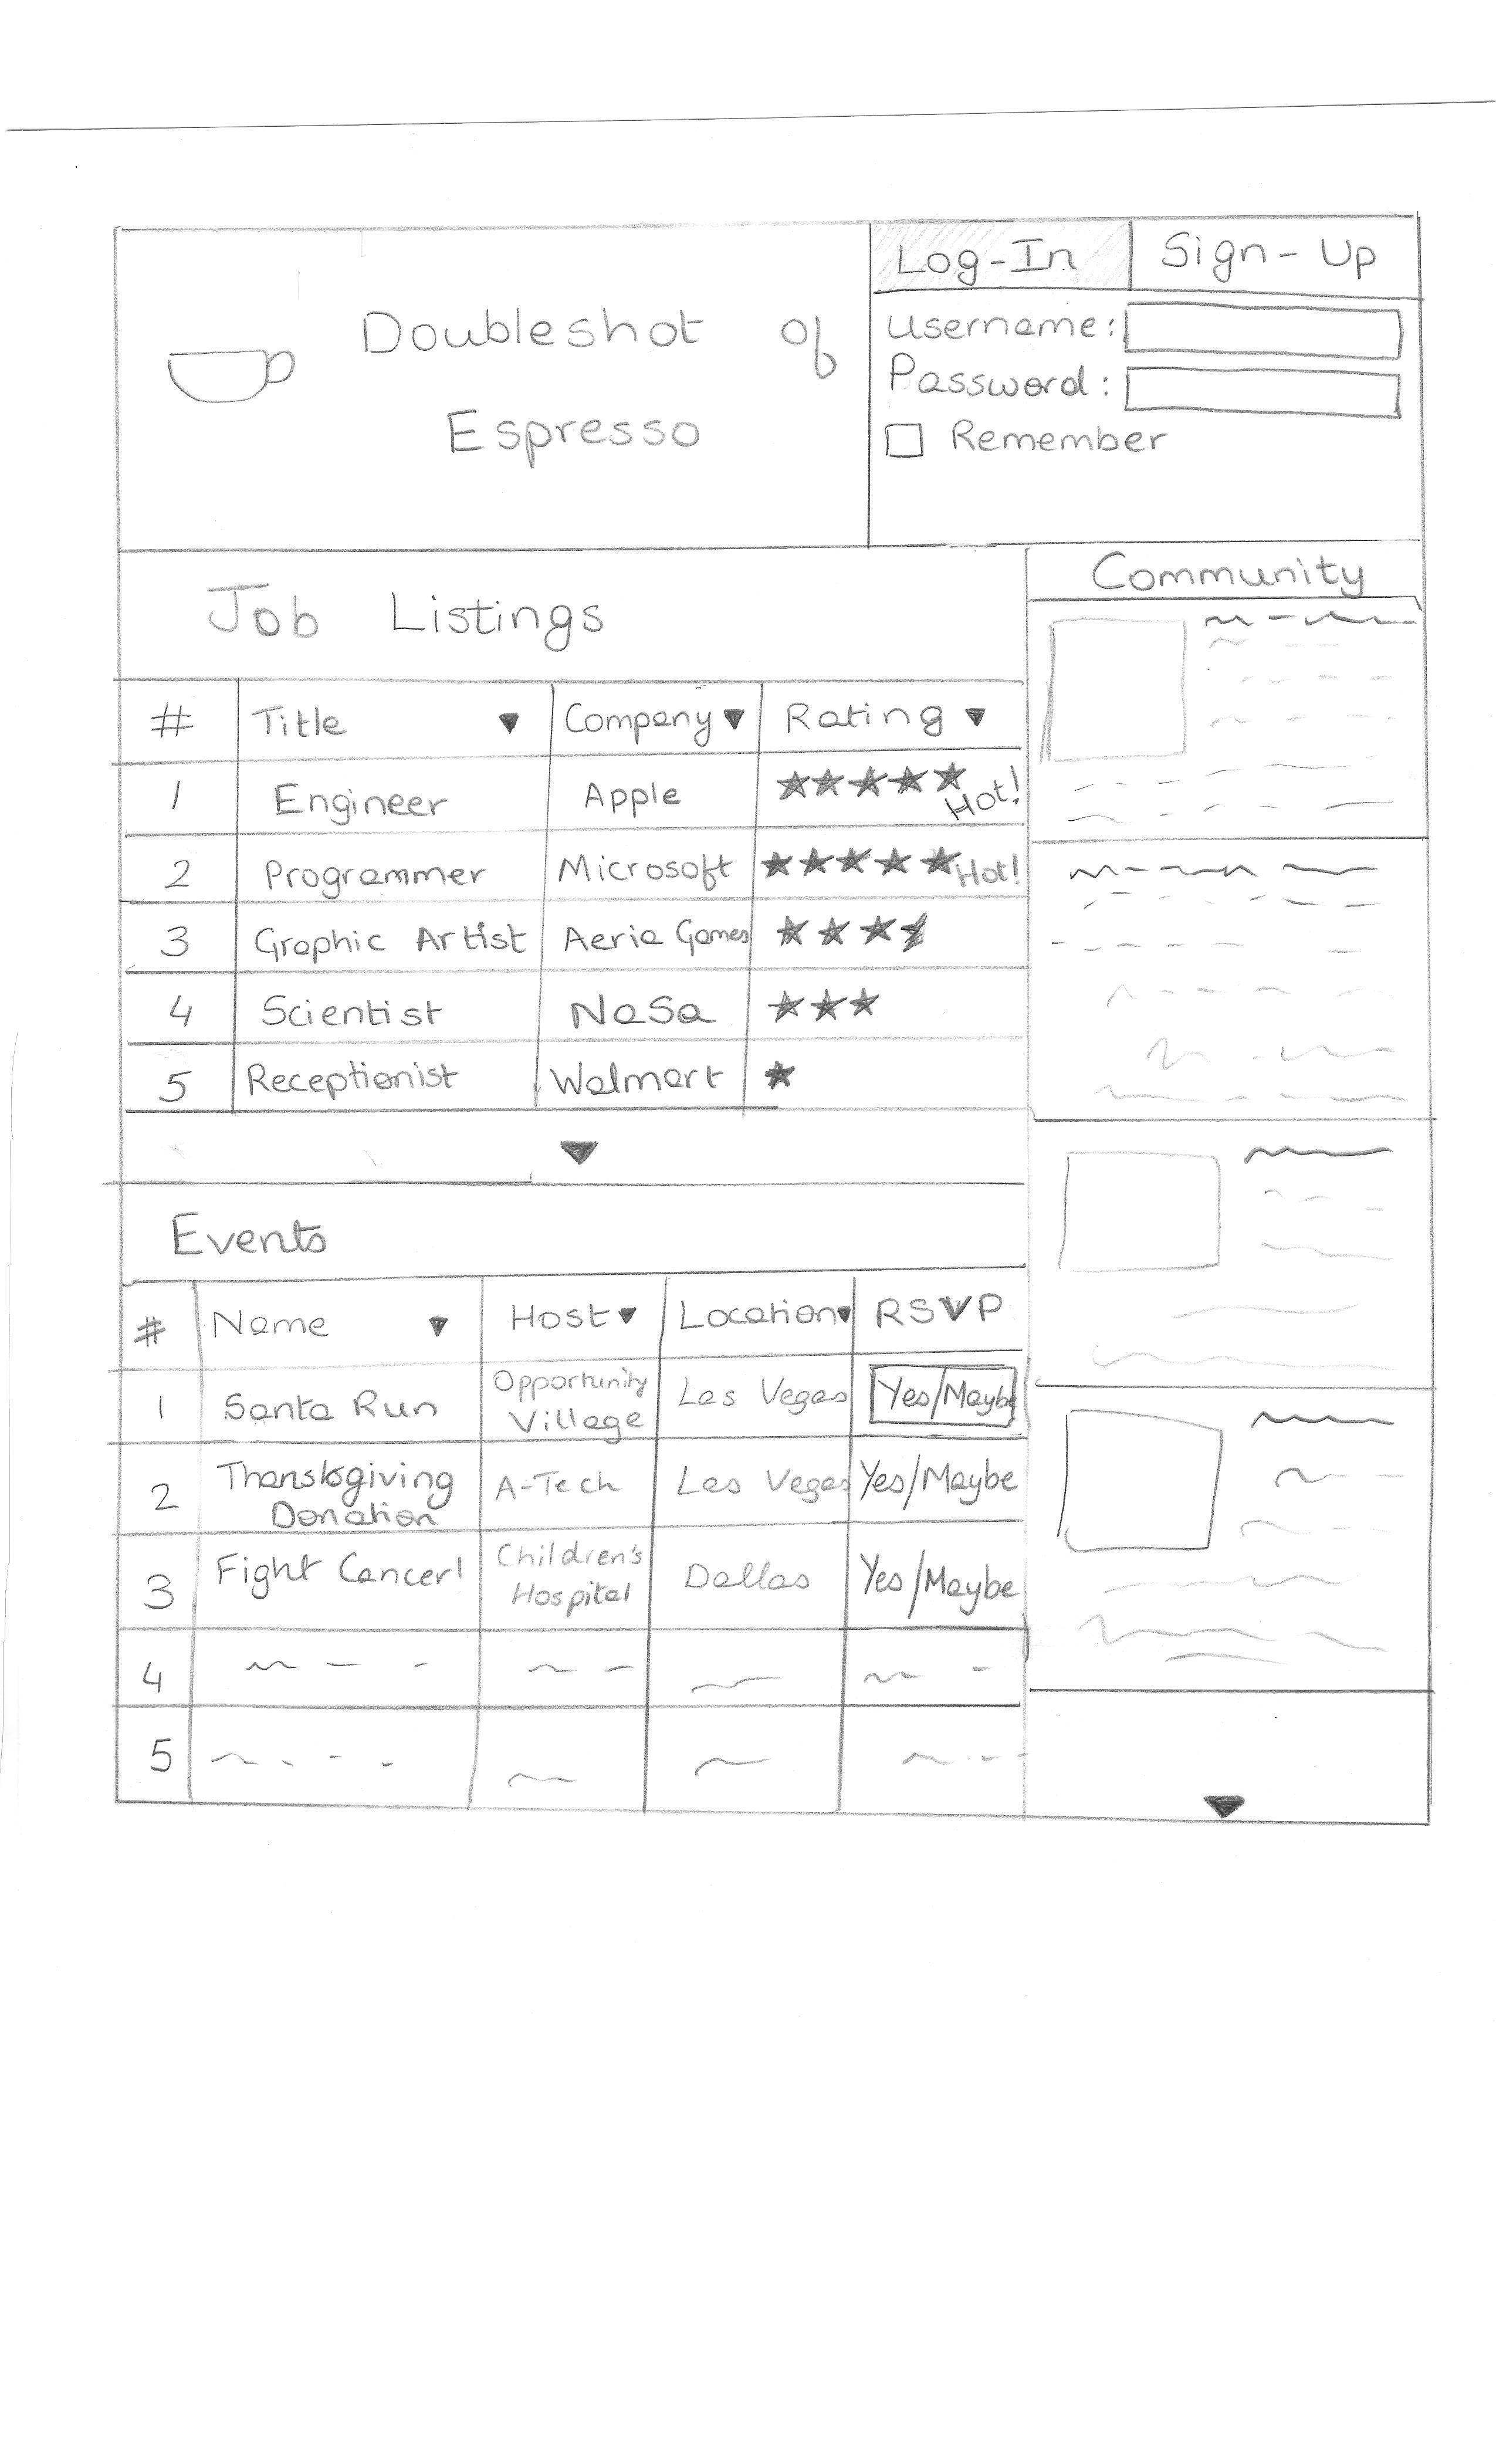 Doubleshot of
Espresso
Log-In Sign-Up
Username:
Password:
Remember
Job Listings
# Title Company Rating
1 Engineer Apple Hot!
2 Programmer Microsoft Hot!
3 Graphic Artist Aeria Games
4 Scientist NaSa
5 Receptionist Walmart
Events
# Name Host Location RSVP
1 Santa Run Opportunity Village Las Vegas Yes/Maybe
2 Thanksgiving Donation A-Tech Las Vegas Yes/Maybe
3 Fight Cancer! Children's Hospital Dallas Yes/Maybe
4
5
Community